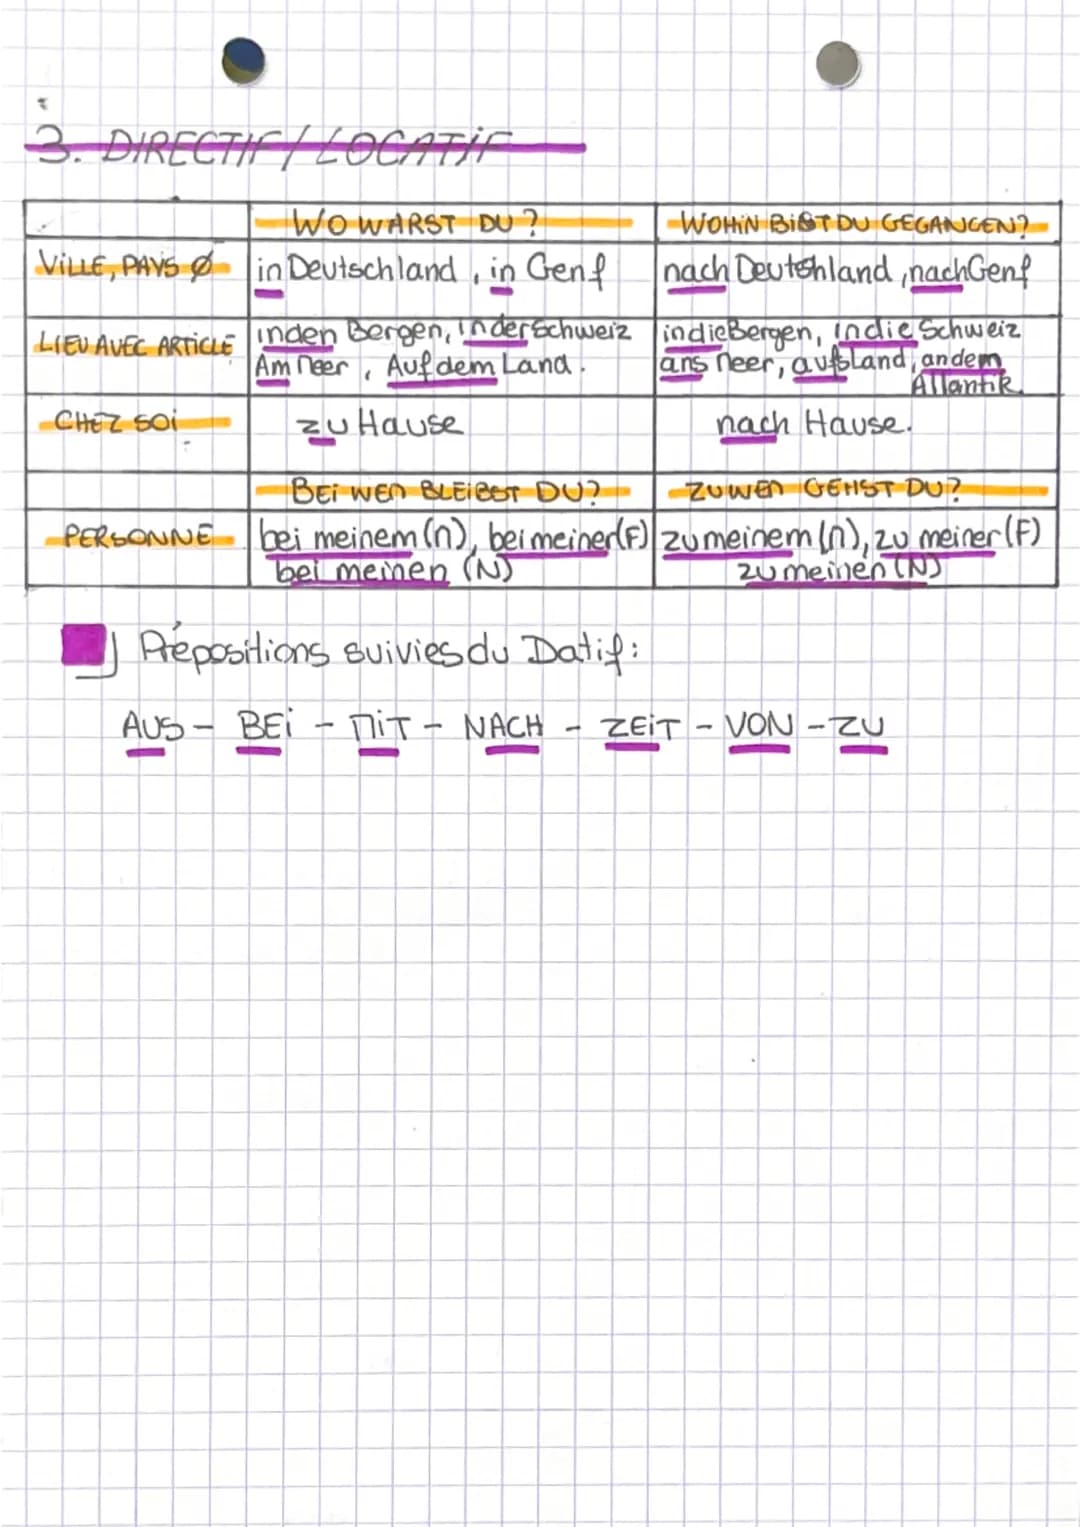 3. DIRECTIF / LOCATIF
WO WARST DU? WOHIN BIST DU GEGANGEN?
VILLE, PAYS Ø in Deutschland, in Genf nach Deutshland, nach Genf
LIEU AVEC ARTICLE in den Bergen, in der Schweiz in die Bergen, in die Schweiz
Am Meer, Auf dem Land. ans Meer, aufs Land, an dem
Atlantik
CHEZ SOI zu Hause nach Hause.
BEI WEM BLEIBST DU? ZU WEM GEHST DU?
PERSONNE bei meinem (M), bei meiner (F) zu meinem (M), zu meiner (F)
bei meinen (N) zu meinen (N)
Prépositions suivies du Datif:
AUS - BEI - MIT - NACH - ZEIT - VON - ZU